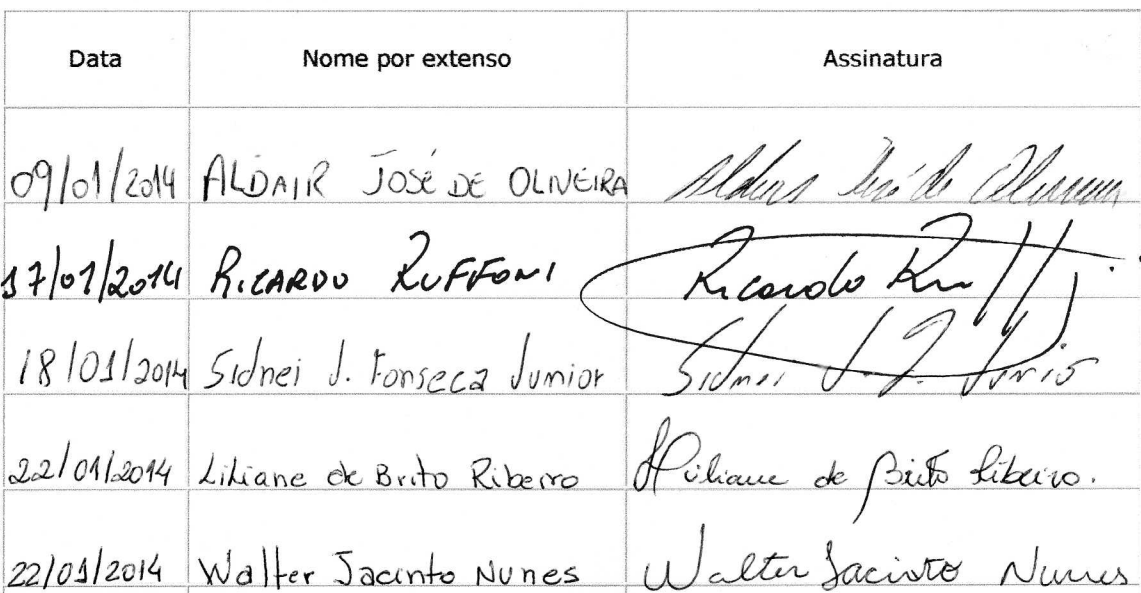 Data Nome por extenso Assinatura
09/01/2014 ALDAIR JOSÉ DE OLIVEIRA Aldair José de Oliveira
17/01/2014 RICARDO RUFFONI Ricardo Ruffoni
18/01/2014 Sidnei J. Fonseca Junior Sidnei J. F. Junior
22/01/2014 Liliane de Brito Ribeiro Liliane de Brito Ribeiro.
22/01/2014 Walter Jacinto Nunes Walter Jacinto Nunes